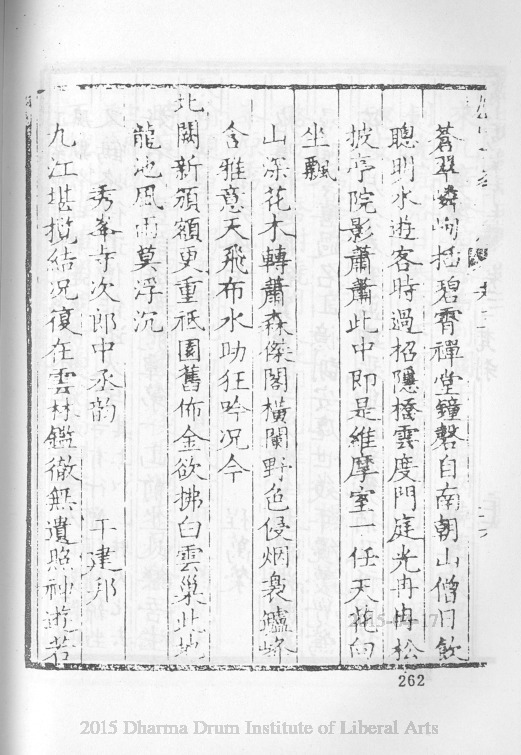 蒼翠嶙峋插碧霄禪堂鐘磬自南朝山僧日飲
聰明水遊客時過招隱橋雲度門庭光冉冉松
披亭院影蕭蕭此中即是維摩室一任天花向
坐飄
山深花木轉蕭森傑閣橫闌野色侵烟裊罏峰
含雅意天飛布水助狂吟况今
北闕新頒額更重祇園舊佈金欲拂白雲巢此地
龍池風雨莫浮沉
秀峯寺次郎中丞韵 干建邦
九江堪攬結况復在雲林鑑徹無遺照神遊若
262
2015 Dharma Drum Institute of Liberal Arts